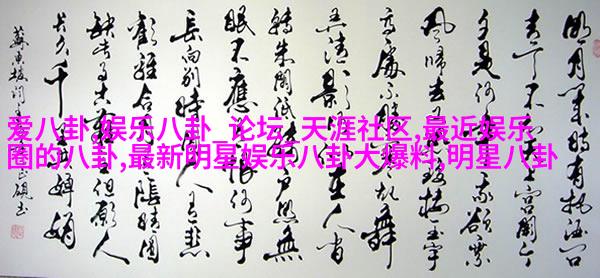 爱八卦 娱乐八卦_论坛_天涯社区,最近娱乐
圈的八卦,最新明星娱乐八卦大爆料,明星八卦
明月幾時有把酒问
青天不知天上宫阙今
夕是何年我欲乘
风归去又恐琼楼玉宇
高处不胜寒起舞
弄清影何似在人间
转朱阁低绮户照无
眠不應有恨何事
长向别时圆人有悲
歡離合月有陰晴圆
缺此事古难全但愿人
长久千里共婵娟
苏东坡词